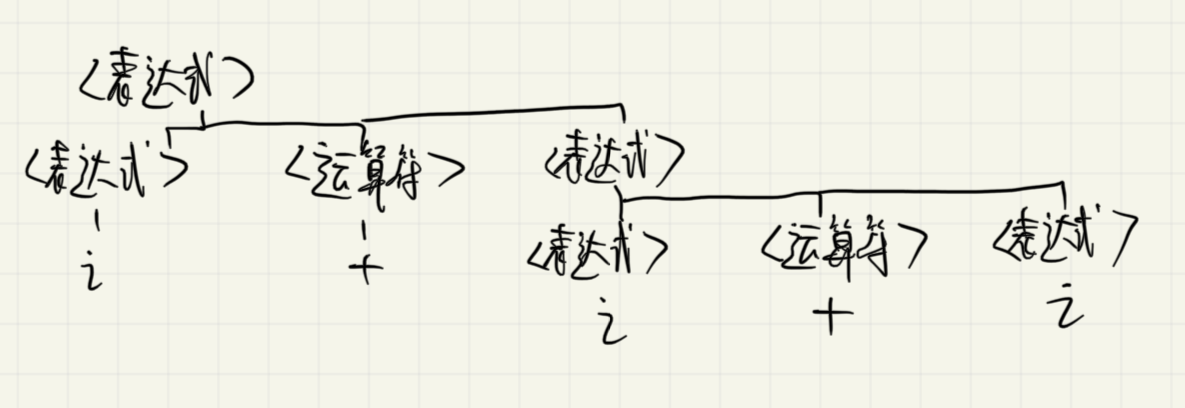 <表达式>
<表达式> <运算符> <表达式>
i + <表达式> <运算符> <表达式>
i + i